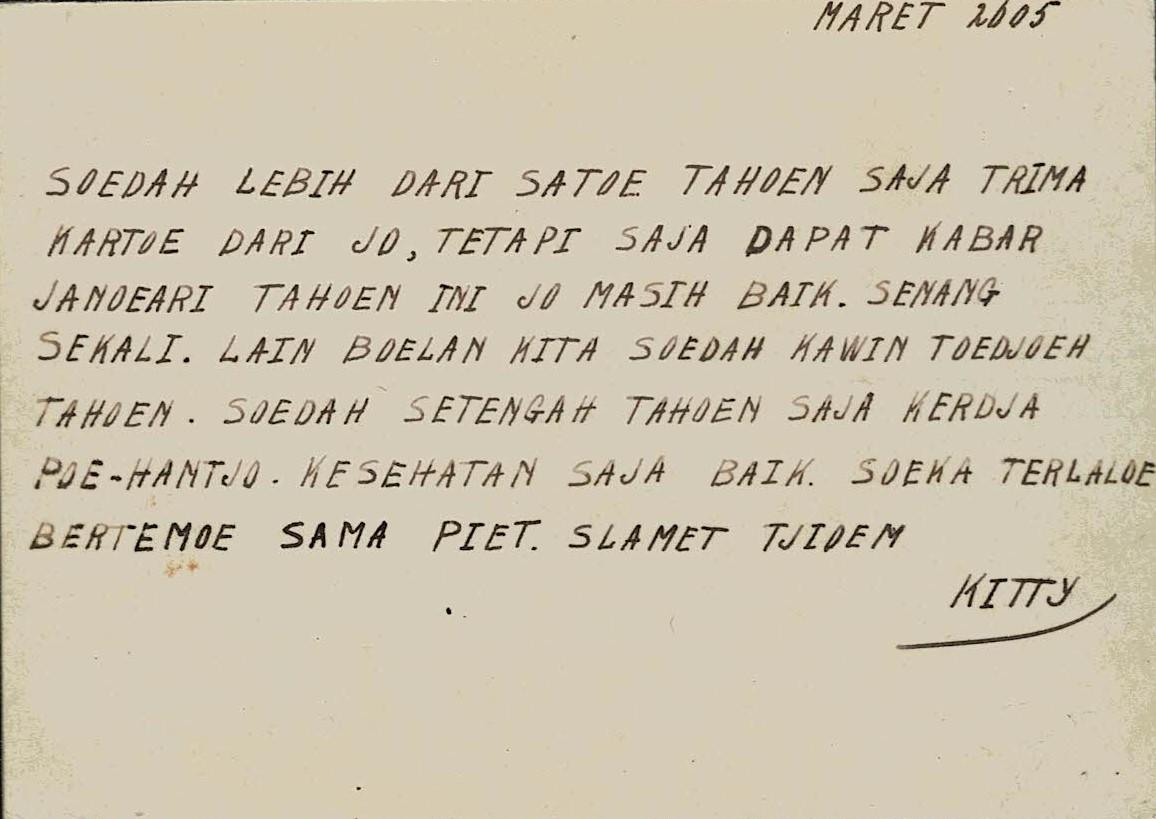 MARET 2605
SOEDAH LEBIH DARI SATOE TAHOEN SAJA TRIMA
KARTOE DARI JO, TETAPI SAJA DAPAT KABAR
JANOEARI TAHOEN INI JO MASIH BAIK. SENANG
SEKALI. LAIN BOELAN KITA SOEDAH KAWIN TOEDJOEH
TAHOEN. SOEDAH SETENGAH TAHOEN SAJA KERDJA
POE-HANTJO. KESEHATAN SAJA BAIK. SOEKA TERLALOE
BERTEMOE SAMA PIET. SLAMET TJIOEM
KITTY